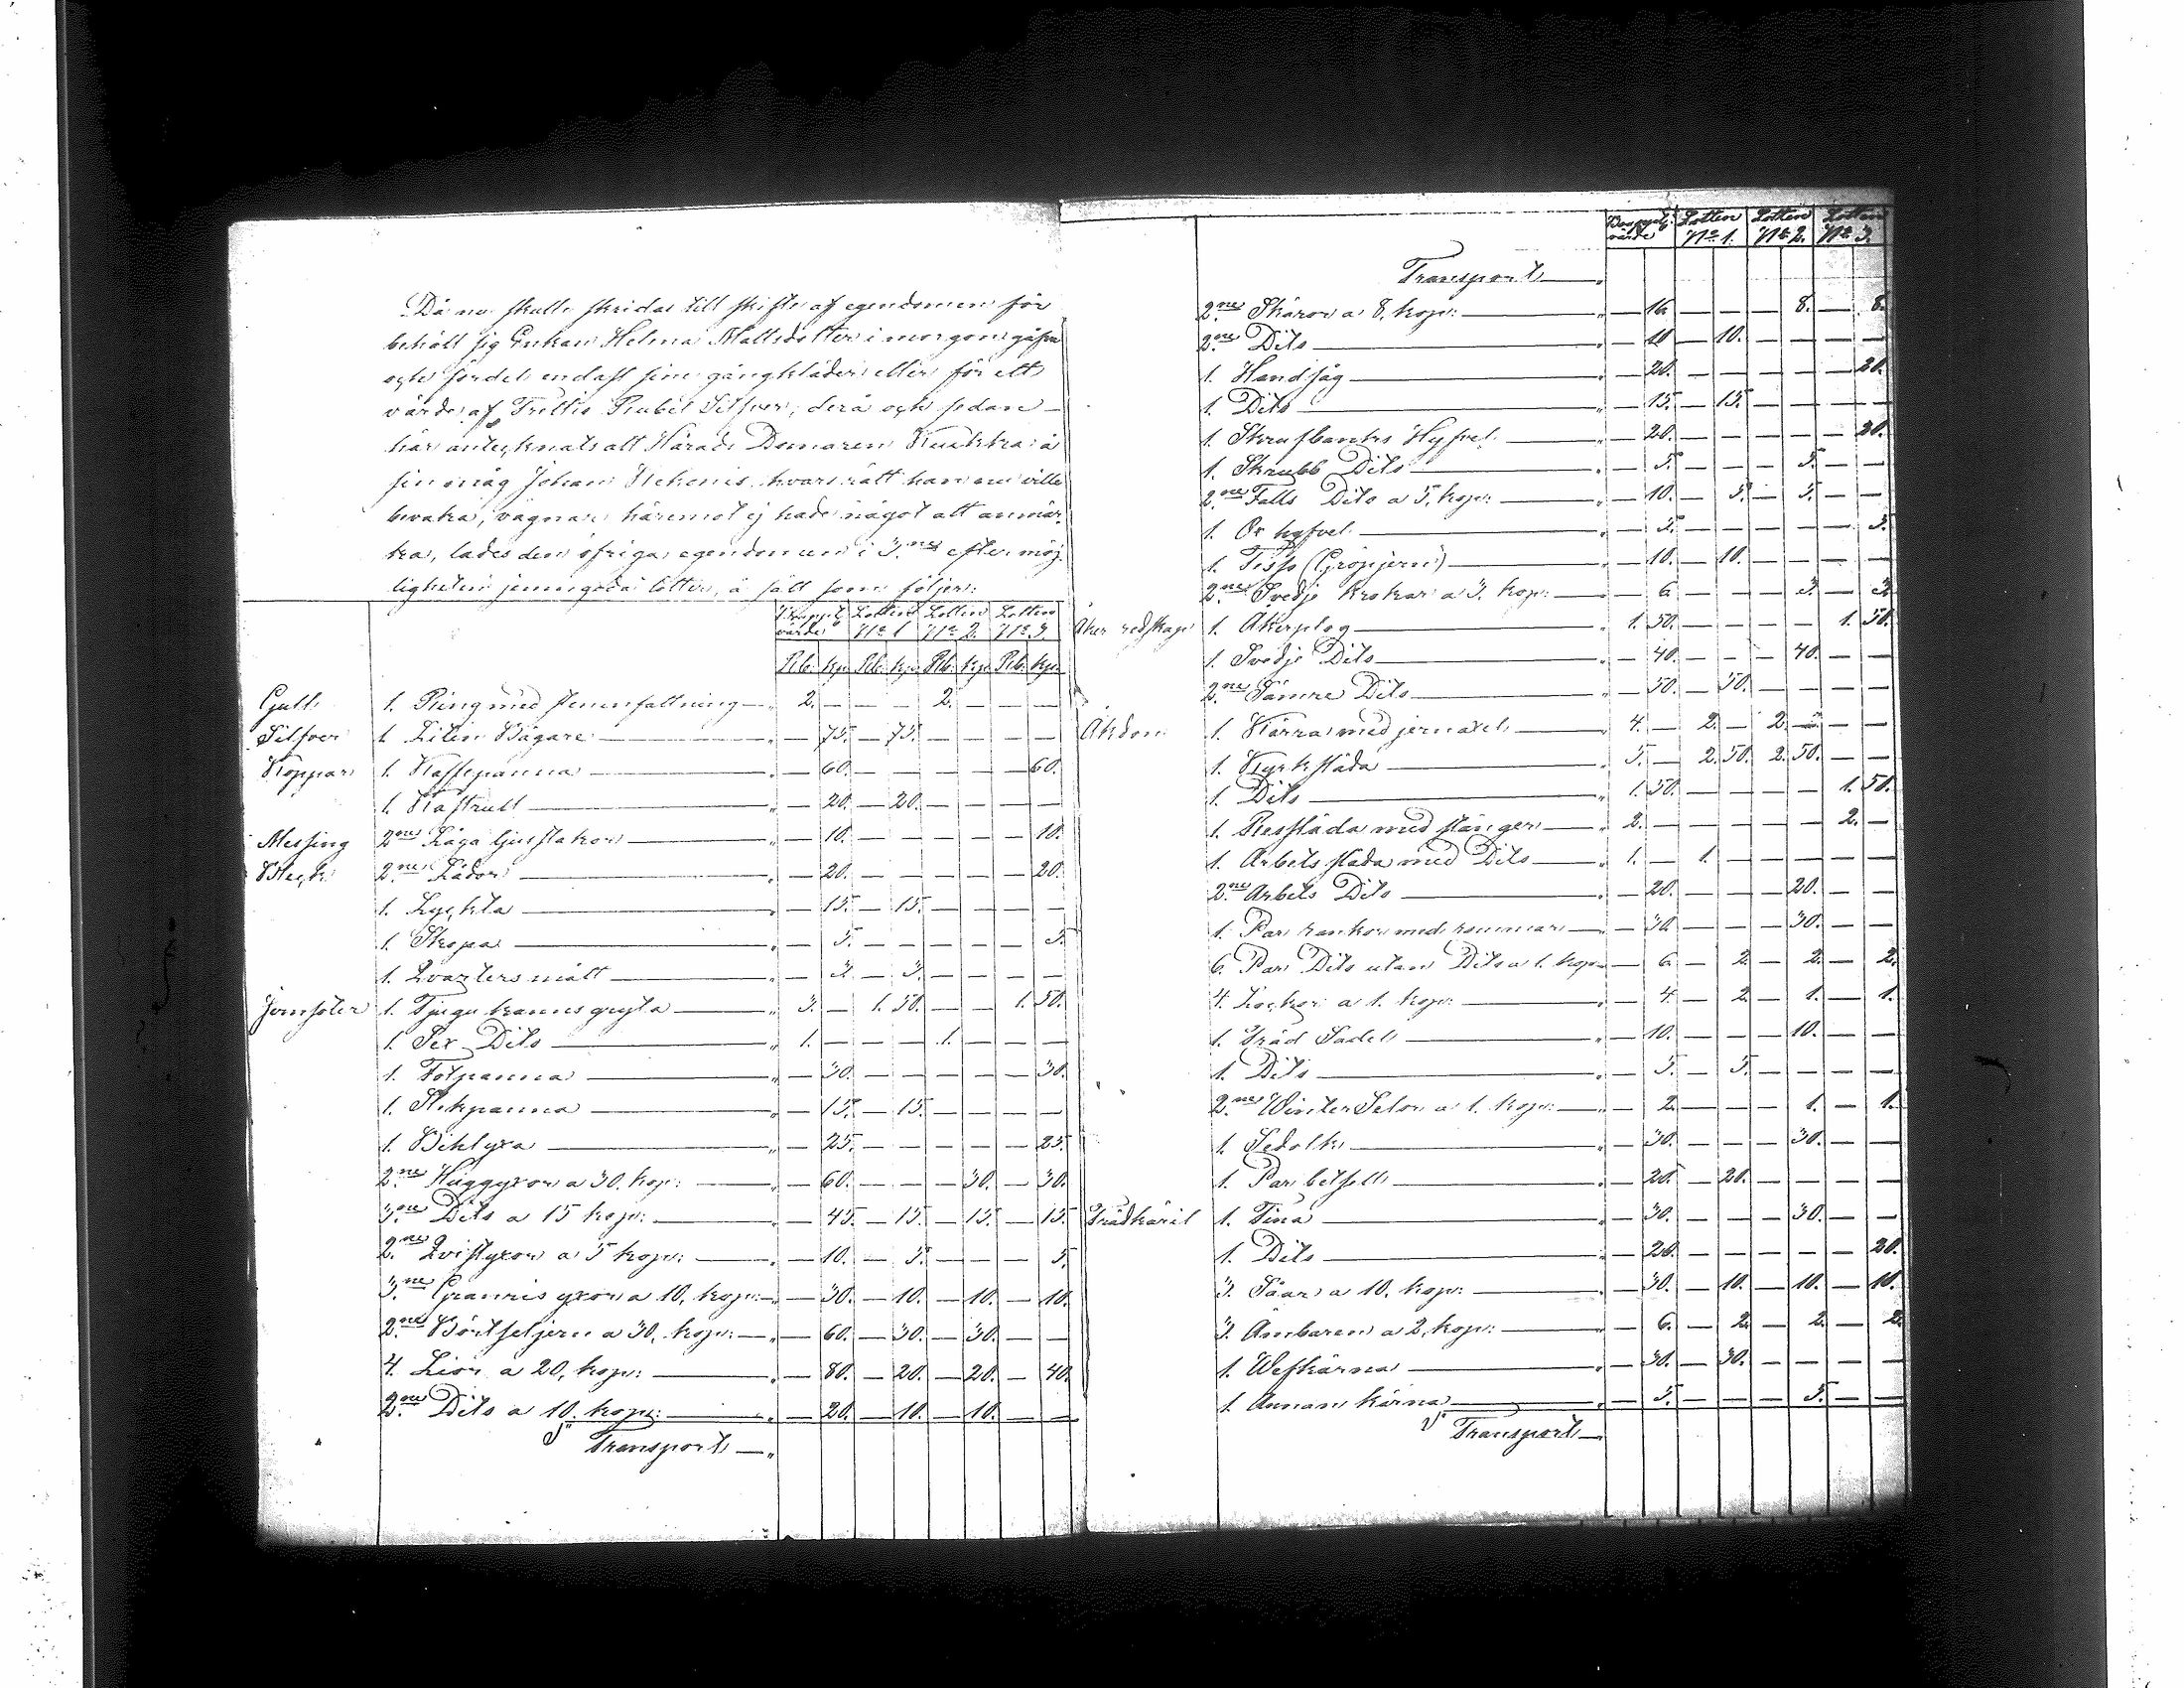 Då nu skulle skridas till skifte af egendomen för
behölt sig Enkan Helena Mattsdotter i morgongåfva
och fördel endast sine gångkläder eller för ett
värde af Trettio Rubel Silfver; derå och sedan
här antecknats att Härads Domaren Kuakka å
sin måg Johan hvars rätt han nu ville
bevaka, vägnar häremot ej hade något att anmär-
ka, lades den öfriga egendomen i 3.ne efter möj-
ligheten jemngoda lotter, å sätt som följer:
Bouppt. värde Lotten No 1 Lotten No 2. Lotten No 3.
Rb. kp. Rb. kp. Rb. kp. Rb. kp.
Guld 1. Ring med stenenfattning 2. — — — 2. — — —
Silfver 1. Liten Bägare — 75. — 75. — — — —
Koppar 1. Kaffepanna — 60. — — — — — 60.
1. Kastrull — 20. — 20. — — — —
Messing 2ne Låga ljusstakor — 10. — — — — — 10.
Bleck 2ne Lådor — 20. — — — — — 20.
1. Lyckta — 15. — 15. — — — —
1. Skopa — 5. — — — — — 5.
1. Qvarters mått — 3. — 3. — — — —
Jernsaker 1. Tjugu kanns gryta 3. — 1. 50. — — 1. 50.
1. Sex Dito 1. — — — 1. — — —
1. Fotpanna — 30. — — — — — 30.
1. Stekpanna — 15. — 15. — — — —
1. Bihlyxa — 25. — — — — — 25.
2ne Huggyxor a 30. kop: — 60. — — — 30. — 30.
3ne Dito a 15 kop: — 45. — 15. — 15. — 15.
2ne Qvistyxor a 5 kop: — 10. — 5. — — — 5.
3ne Granris yxor a 10, kop: — 30. — 10. — 10. — 10.
2ne a 30, kop: — 60. — 30. — 30. — —
4. Lior a 20, kop: — 80. — 20. — 20. — 40.
2ne Dito a 10. kop: — 20. — 10. — 10. — —
Transport
Bouppt: värde Lotten No 1. Lotten No 2. Lotten No 3.
Transport
2ne Skäror a 8, kop: — 16. — — — 8. — 8.
2ne Dito — 10 — 10. — — — —
1. Handsåg — 20. — — — — — 20.
1. Dito — 15. — 15. — — — —
1. Skrufbanks Hyfvel — 20. — — — — — 20.
1. Skrubb Dito — 5. — — — 5. — —
2ne Falls Dito a 5, kop: — 10. — 5. — 5. — —
1. Or hyfvel — 5. — — — — — 5.
1. (Gröpjern) — 10. — 10. — — — —
2ne Svedje krokar a 3. kop: — 6. — — — 3. — 3.
Åker redskap 1. Åkerplog 1. 50. — — — — 1. 50.
1. Svedje Dito — 40. — — — 40. — —
2ne Sämre Dito — 50. — 50. — — — —
Åkdon 1. Kärra med jernaxel 4. — 2. — 2. — — —
1. Kyrksläda 5. — 2. 50. 2. 50. — —
1. Dito 1. 50. — — — — 1. 50.
1. Ressläda med stänger 2. — — — — — 2. —
1. Arbets släda med Dito 1. — 1. — — — — —
2ne Arbets Dito — 20. — — — 20. — —
1. Par med remmar — 30. — — — 30. — —
6. Par Dito utan Dito a 1. kop — 6. — 2. — 2. — 2.
4. Lockor a 1. kop: — 4. — 2. — 1. — 1.
1. Träd Sadel — 10. — — — 10. — —
1. Dito — 5. — 5. — — — —
2ne Winter Selor a 1. kop: — 2. — — — 1. — 1.
1. Sedolk — 30. — — — 30. — —
1. Par betsell — 20. — 20. — — — —
Trädkäril 1. Tina — 30. — — — 30. — —
1. Dito — 20. — — — — — 20.
3. Såar a 10. kop: — 30. — 10. — 10. — 10.
3. Ämbaren a 2, kop: — 6. — 2. — 2. — 2.
1. Wefkärna — 30. — 30. — — — —
1. Annan kärna — 5. — — — 5. — —
Transport